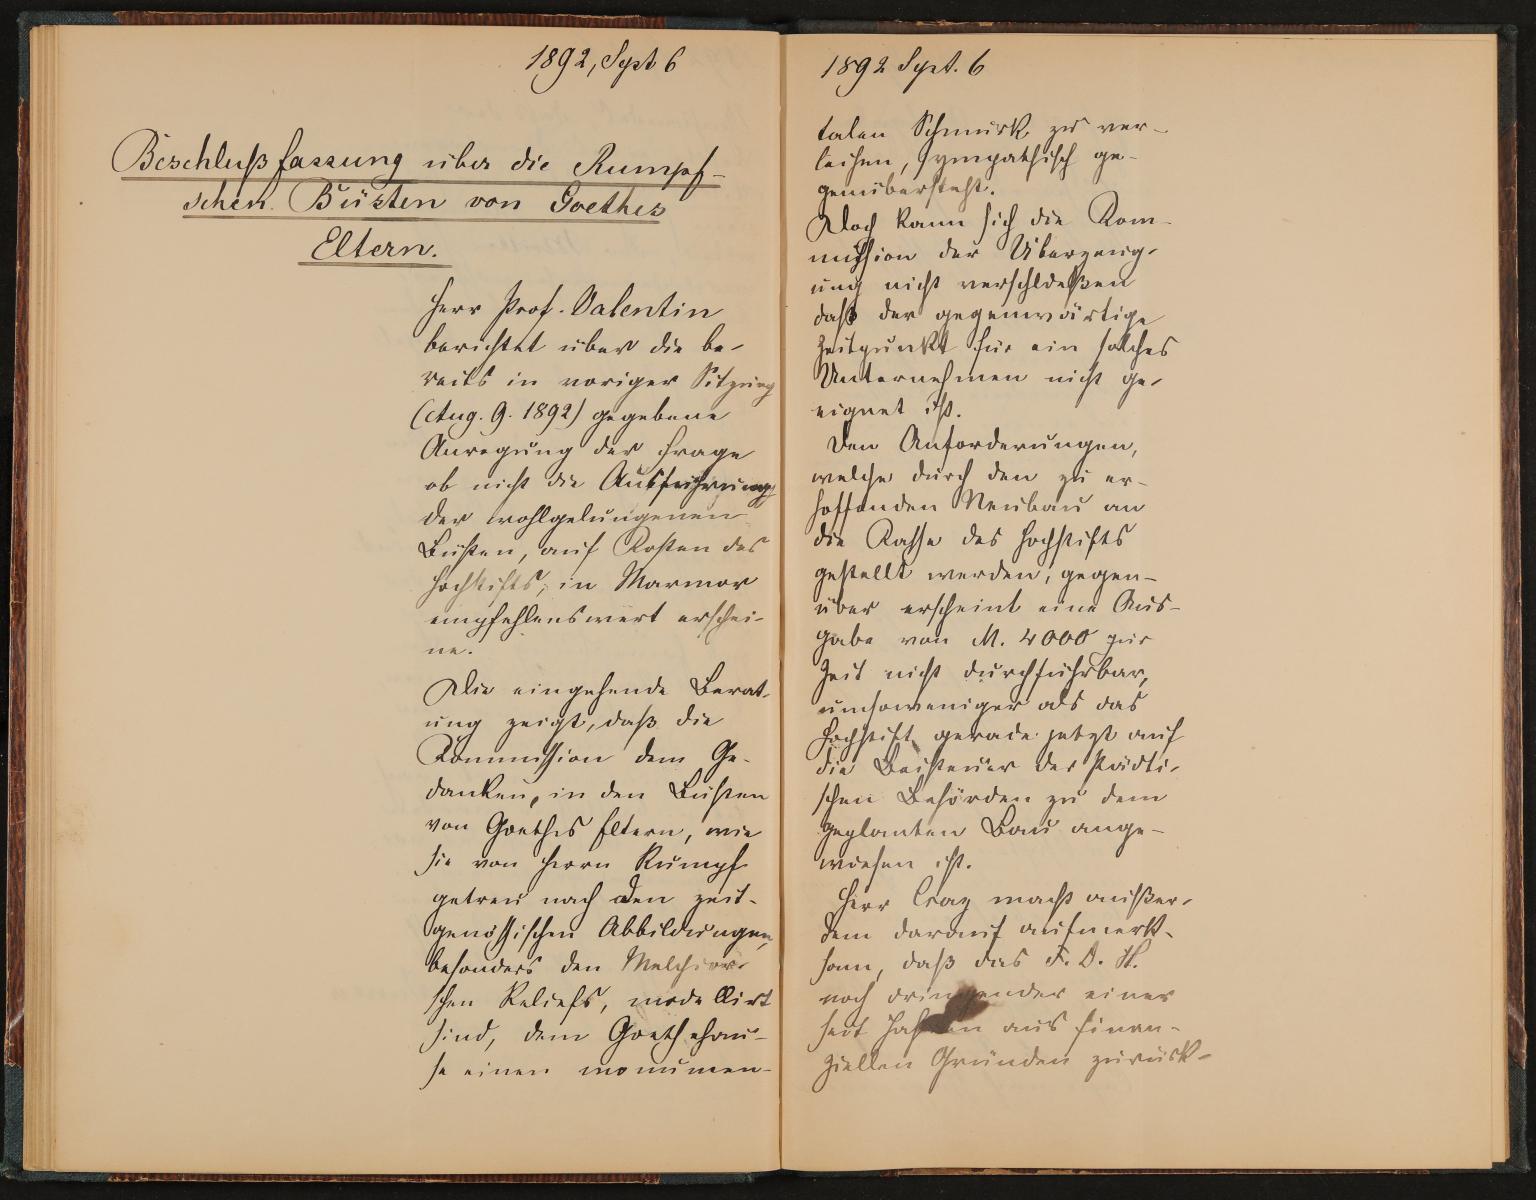 1892, Sept 6
Beschlußfassung über die Rumpf-
schen Büsten von Goethes
Eltern.
Herr Prof. Valentin
berichtet über die be-
reits in voriger Sitzung
(Aug. 9. 1892) gegebene
Anregung der Frage
ob nicht die Ausführung
der wohlgelungenen
Büsten, auf Kosten des
Hochstifts, in Marmor
empfehlenswert erschei-
ne.
Die eingehende Berat-
ung zeigt, daß die
Kommission dem Ge-
danken, in den Büsten
von Goethes Eltern, wie
sie von Herrn Rumpf
getreu nach den zeit-
genössischen Abbildungen,
besonders den Melchior-
schen Reliefs, modellirt
sind, dem Goethehau-
se einen monumen-
1892 Sept. 6
talen Schmuck zu ver-
leihen, sympathisch ge-
genübersteht.
Doch kann sich die Kom-
mission der Überzeug-
ung nicht verschließen
daß der gegenwärtige
Zeitpunkt für ein solches
Unternehmen nicht ge-
eignet ist.
Den Anforderungen,
welche durch den zu er-
hoffenden Neubau an
die Kasse des Hochstifts
gestellt werden, gegen-
über erscheint eine Aus-
gabe von M. 4000 zur
Zeit nicht durchführbar,
umsoweniger als das
Hochstift gerade jetzt auf
die Beisteuer der städti-
schen Behörden zu dem
geplanten Bau ange-
wiesen ist.
Herr macht außer-
dem darauf aufmerk-
sam, daß das F. D. H.
noch dringender einer
seit Jahren aus finan-
ziellen Gründen zurück-